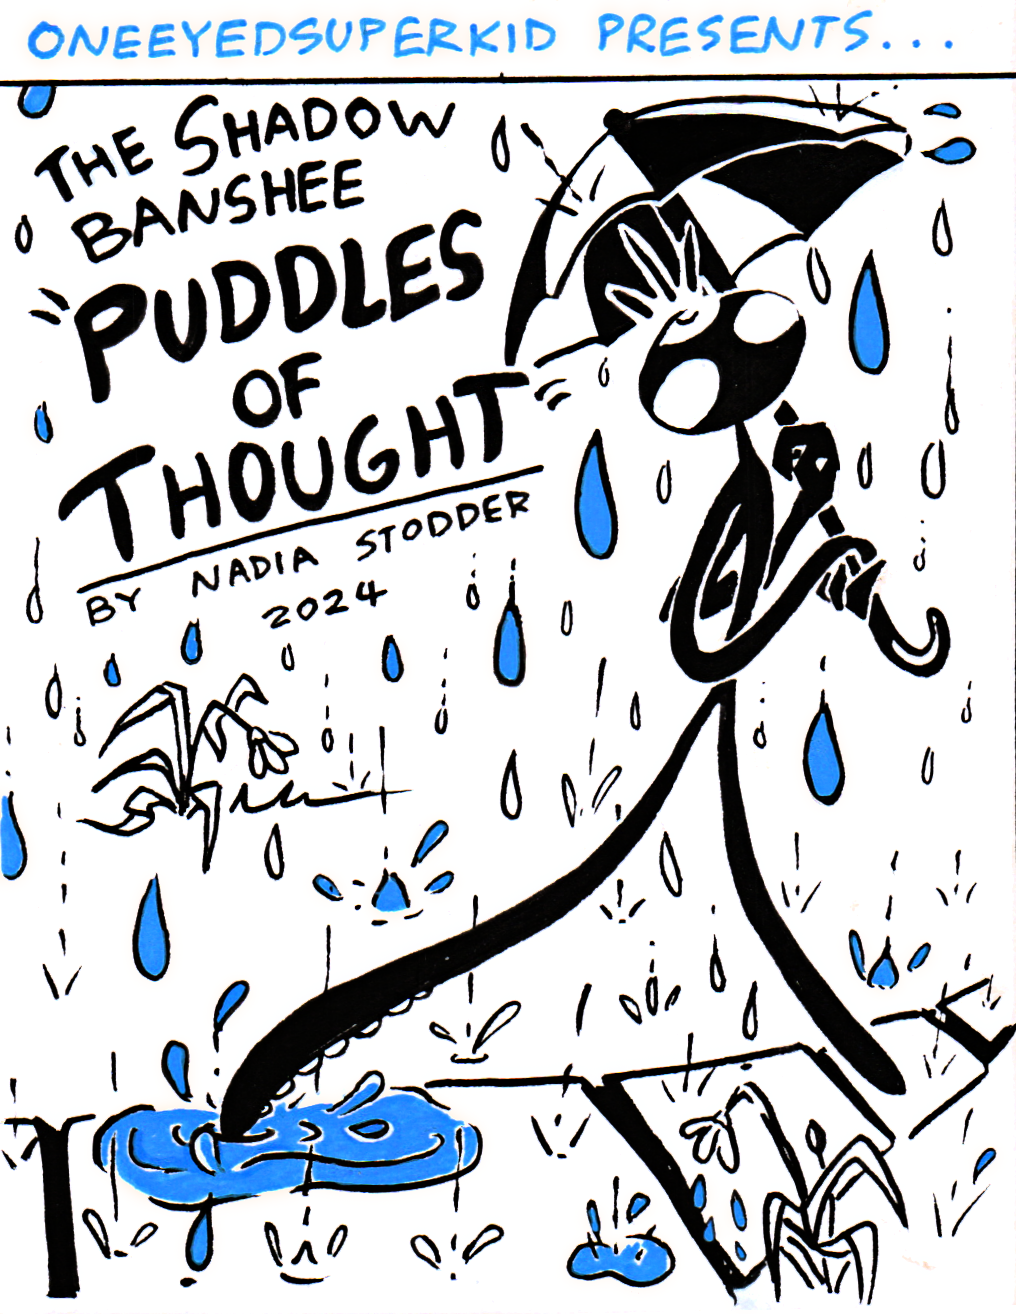 ONEEYEDSUPERKID PRESENTS...
THE SHADOW
BANSHEE
PUDDLES
OF
THOUGHT
BY NADIA STODDER
2024